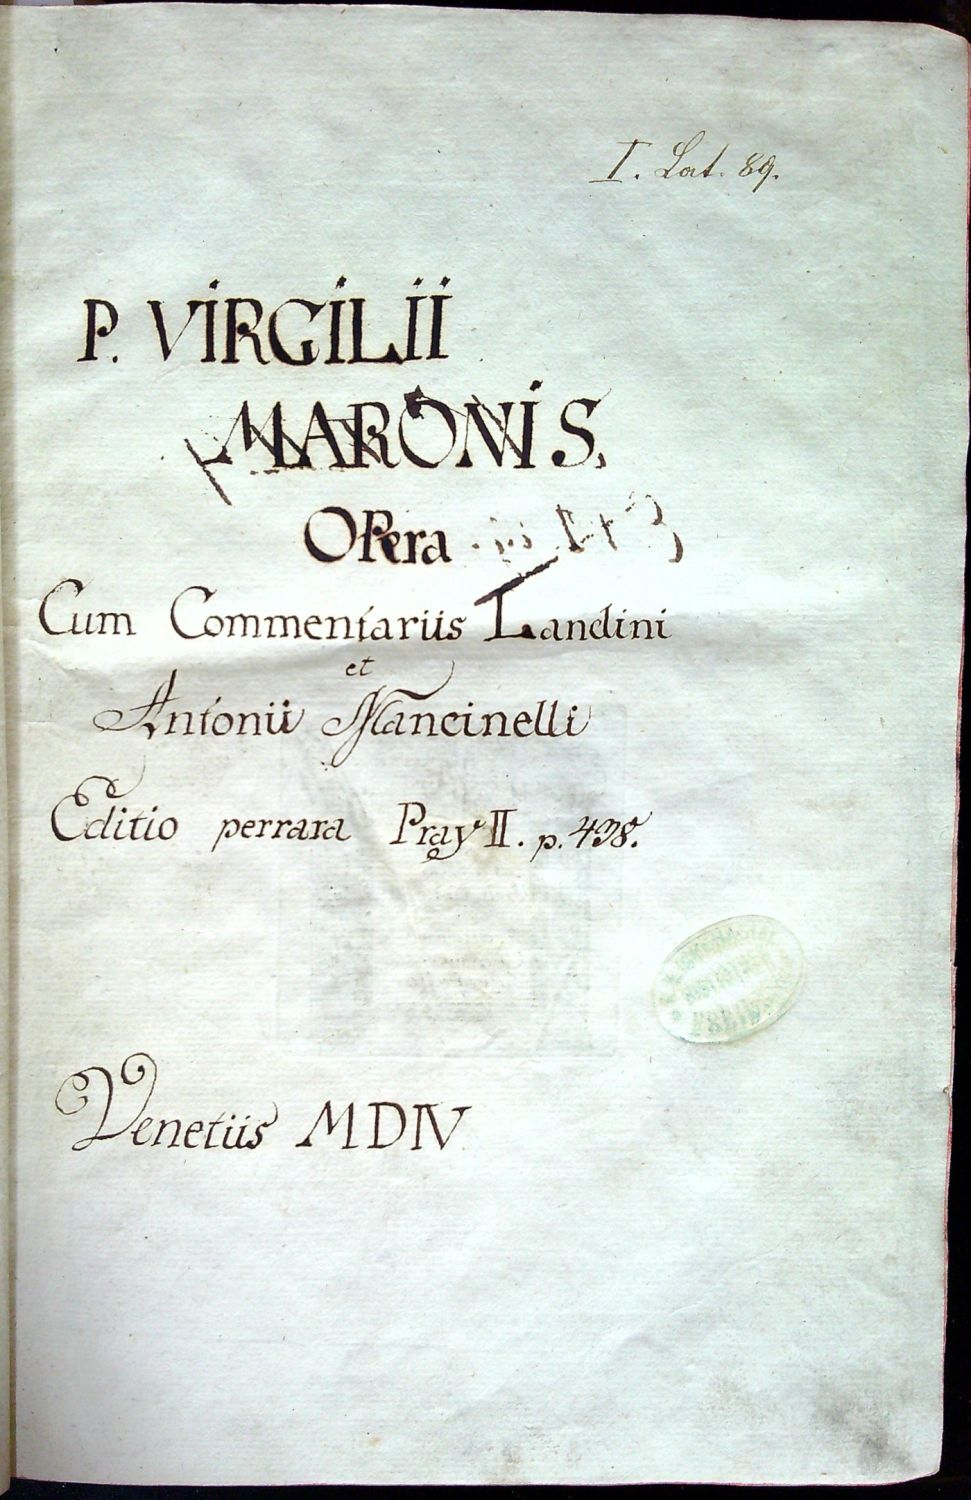 I. Lat. 89.
P. VIRGILII
MARONIS.
OPera
Cum Commentariis Landini
et
Antonii Mancinelli
Editio perrara Pray II. p. 438.
Venetiis MDIV